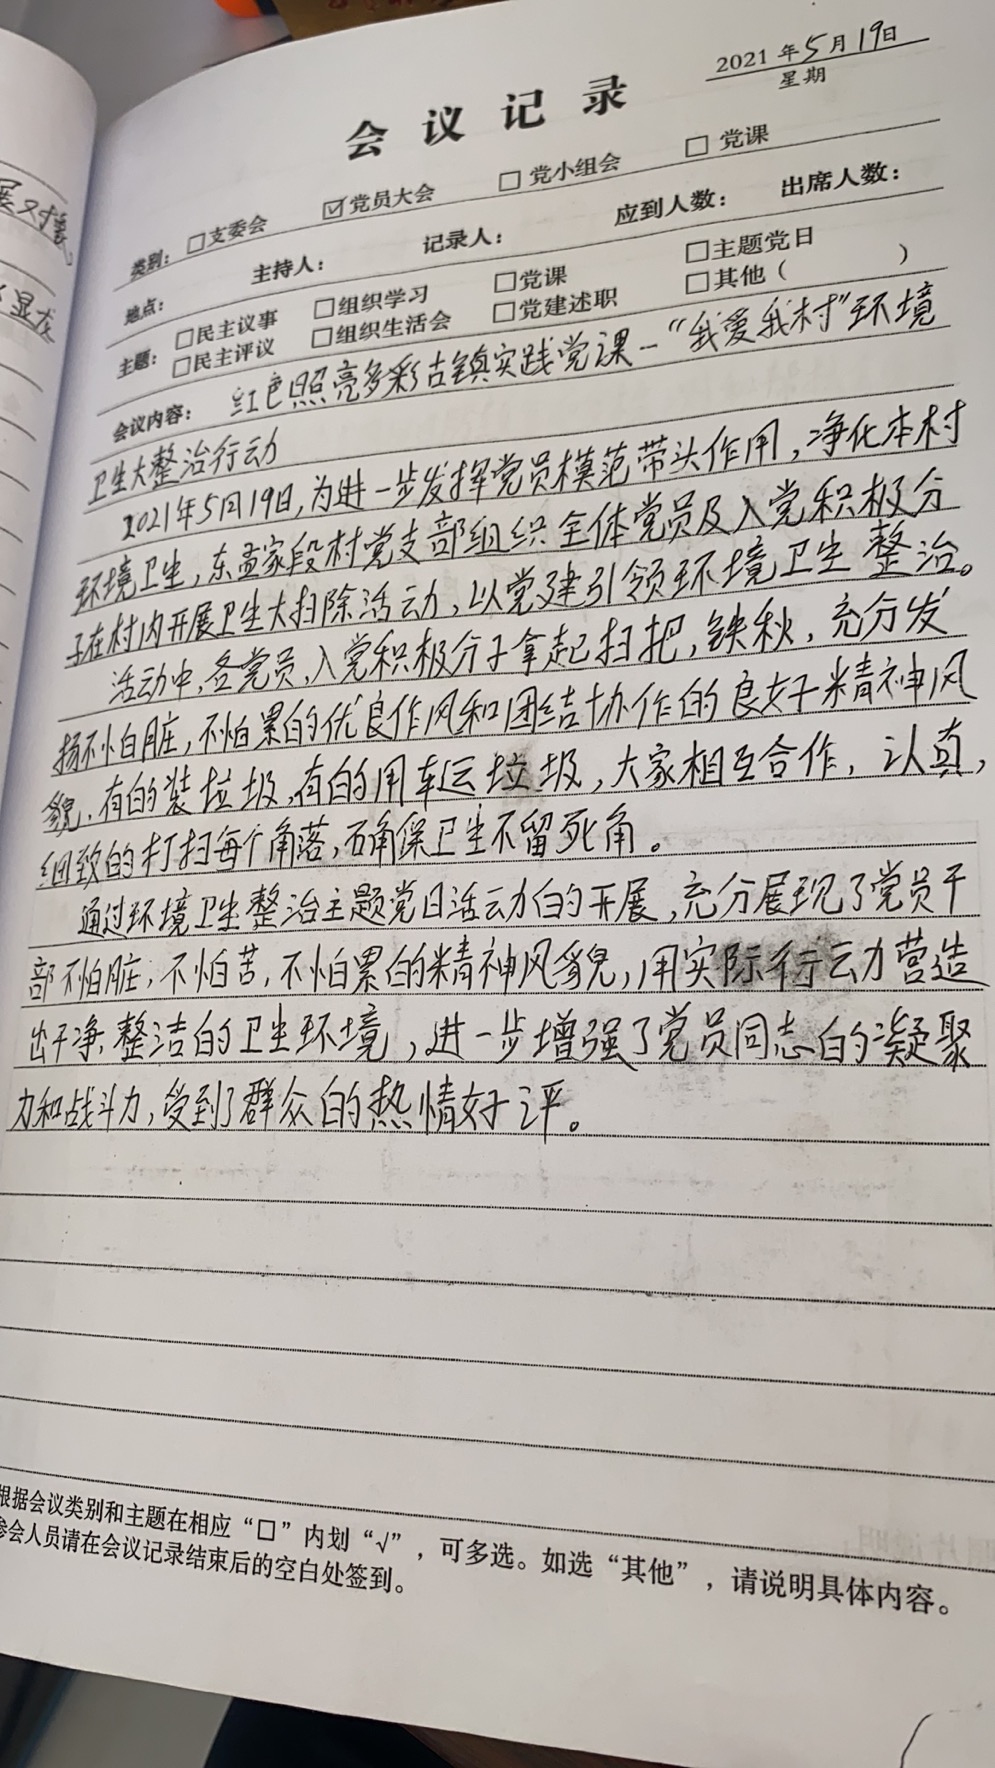 2021年5月19日
星期
会议记录
类别：□支委会 ☑党员大会 □党小组会 □党课
地点： 主持人： 记录人： 应到人数： 出席人数：
主题：□民主议事 □组织学习 □党课 □主题党日
□民主评议 □组织生活会 □党建述职 □其他（ ）
会议内容：红色照亮多彩古镇实践党课—“我爱我村”环境
卫生大整治行动
2021年5月19日，为进一步发挥党员模范带头作用，净化本村
环境卫生，东孟家段村党支部组织全体党员及入党积极分
子在村内开展卫生大扫除活动，以党建引领环境卫生整治。
活动中，各党员、入党积极分子拿起扫把，铁秋，充分发
扬不怕脏，不怕累的优良作风和团结协作的良好精神风
貌，有的装垃圾，有的用车运垃圾，大家相互合作，认真，
细致的打扫每个角落，确保卫生不留死角。
通过环境卫生整治主题党日活动的开展，充分展现了党员干
部不怕脏，不怕苦，不怕累的精神风貌，用实际行动营造
出干净、整洁的卫生环境，进一步增强了党员同志的凝聚
力和战斗力，受到了群众的热情好评。
根据会议类别和主题在相应“□”内划“√”，可多选。如选“其他”，请说明具体内容。
参会人员请在会议记录结束后的空白处签到。